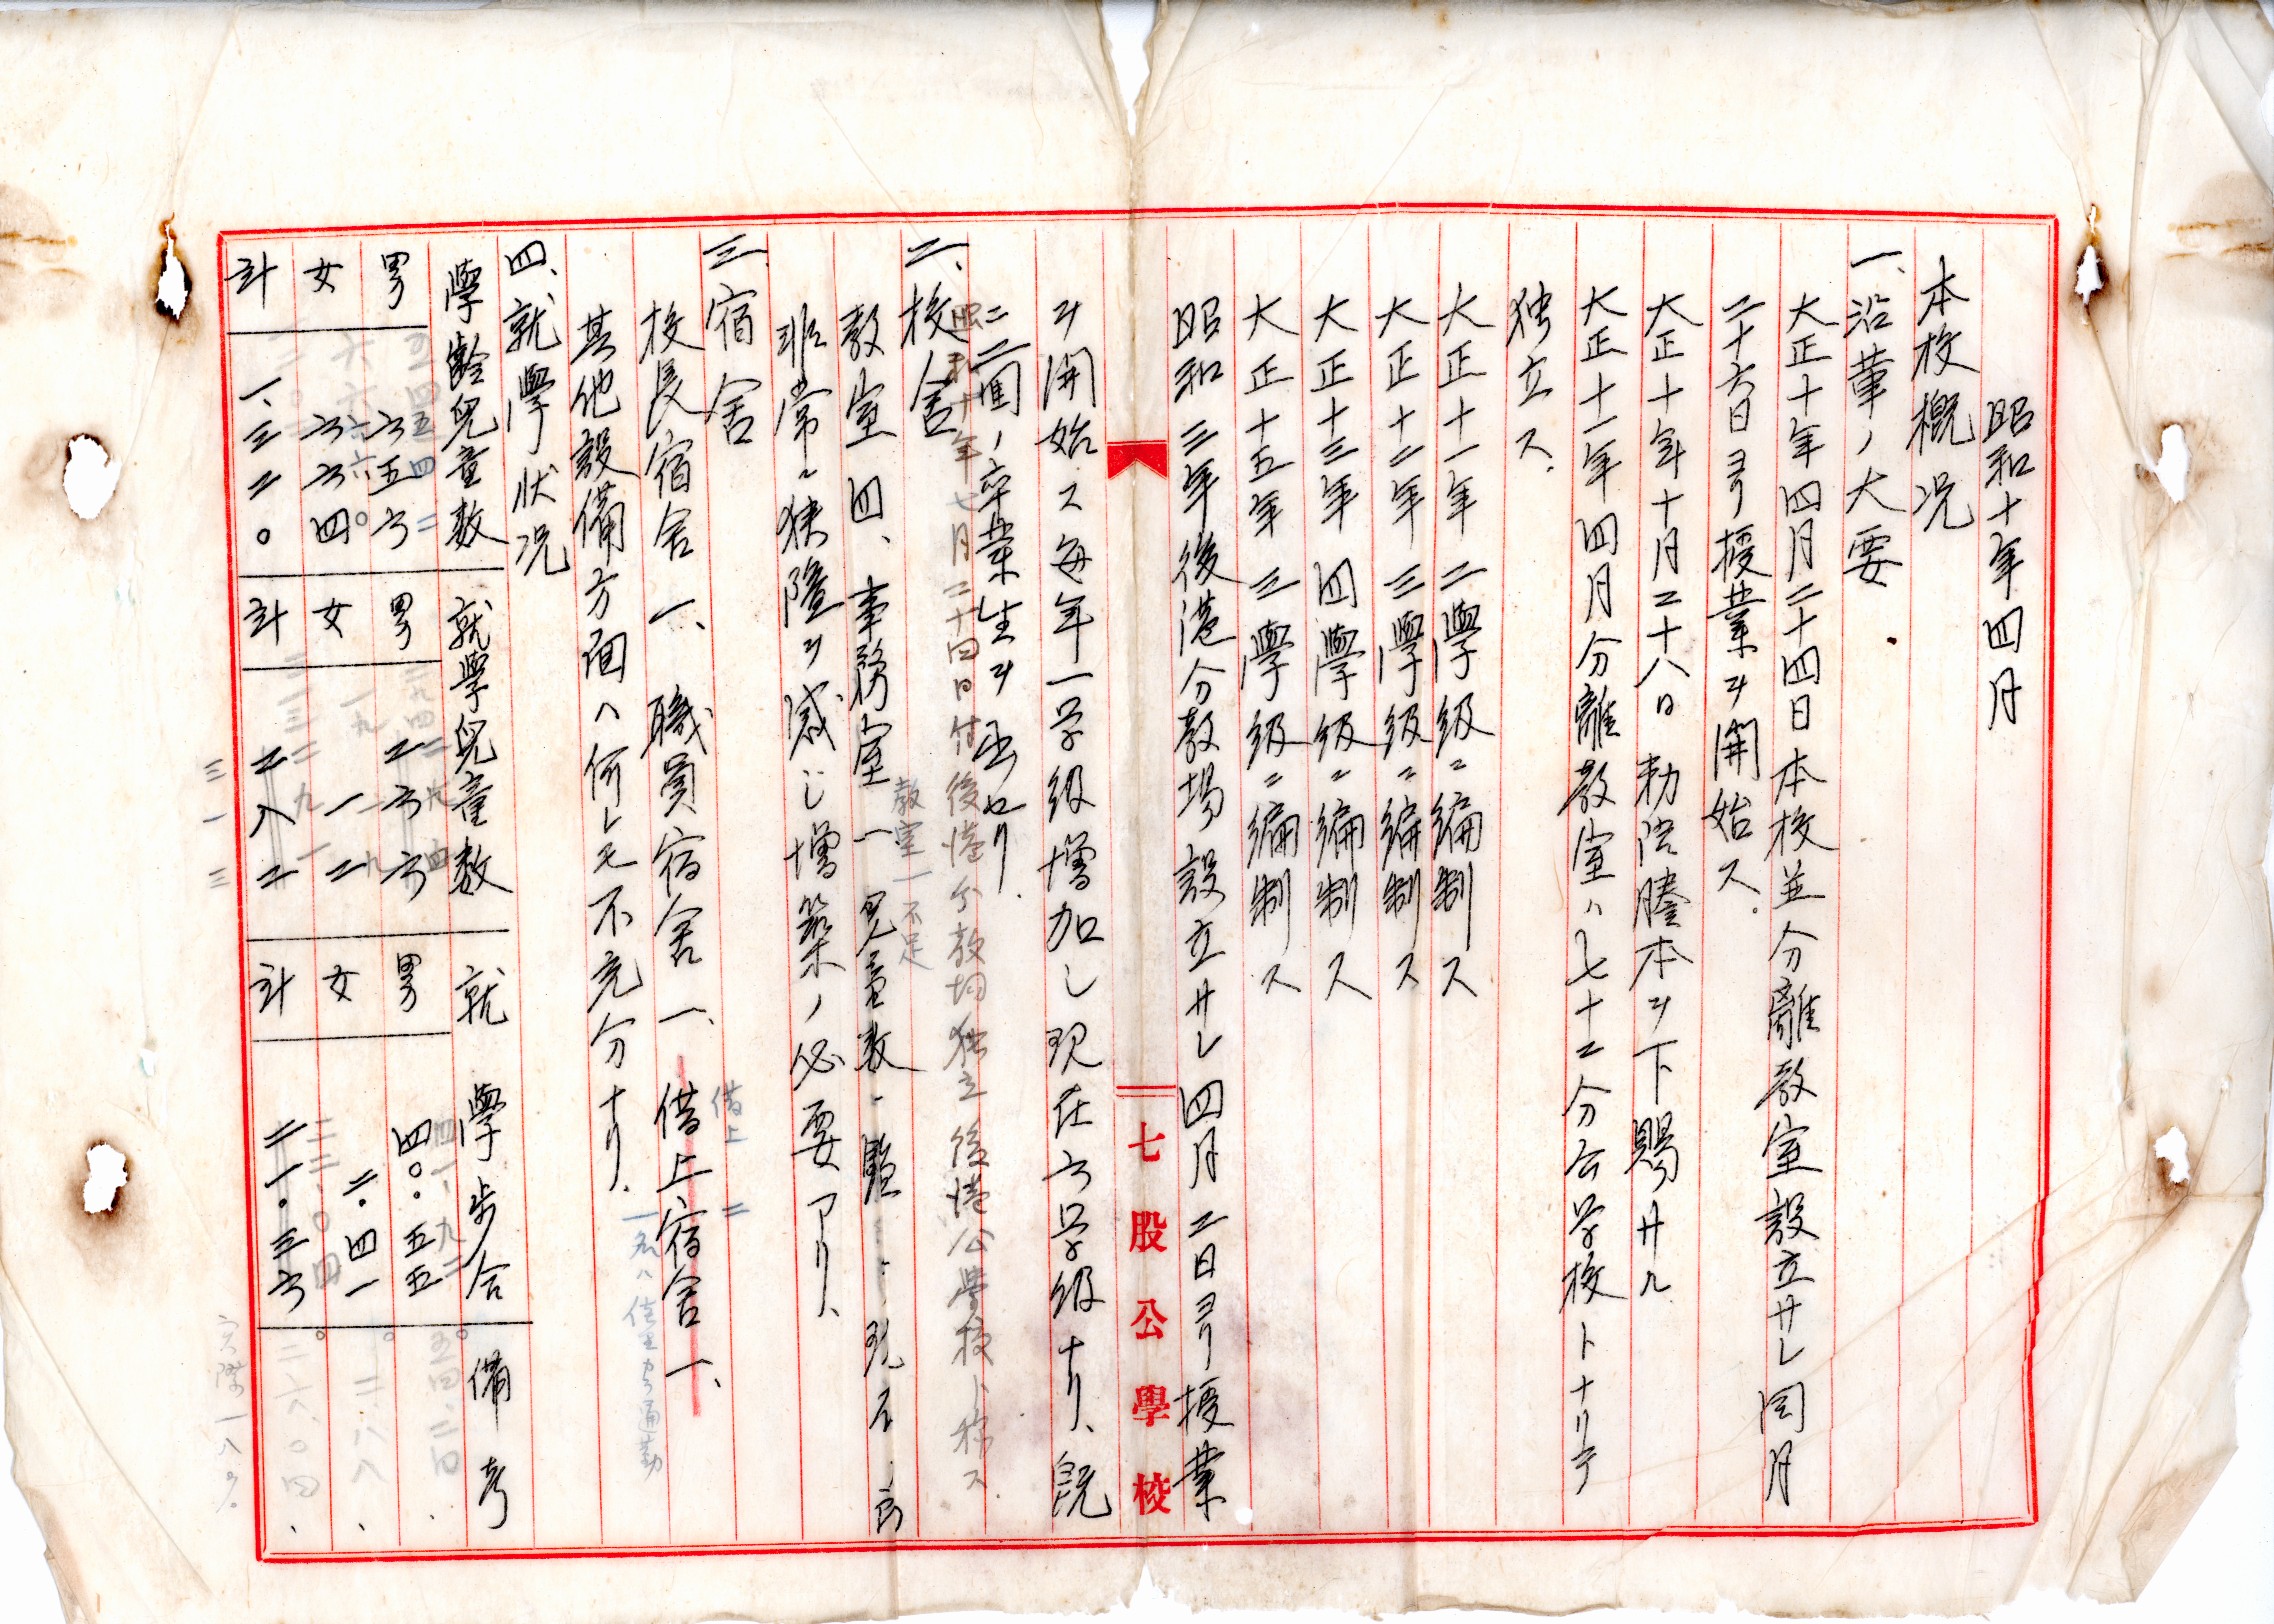 昭和十年四月
本校概況
一、沿革ノ大要
大正十年四月二十四日本校並分離教室設立サレ同月
二十六日ヨリ授業ヲ開始ス.
大正十年十月二十八日 勅語謄本ヲ下賜サル
大正十一年四月分離教室ハ七十二分公学校トナリテ
独立ス.
大正十一年 二學級ニ編制ス
大正十二年 三學級ニ編制ス
大正十三年 四學級ニ編制ス
大正十五年 三學級ニ編制ス
昭和三年後港分教場設立サレ四月二日ヨリ授業
七股公學校
ヲ開始ス毎年一学級増加シ現在六学級ナリ、既
ニ二囬ノ卒業生ヲ出セリ.
昭和十年七月二十四日付後港分教場独立後港公學校ト称ス.
二、校舎
教室一不足
教室四、事務室一 児童数ニ 現在
非常ニ狭隘ヲ感ジ増築ノ必要アリ、
三、宿舎
借上 二
校長宿舎一、職員宿舎一、借上宿舎一、
其他設備方面ハ何レモ不充分ナリ.
四、就學状况
學齢児童数 就學児童数 就學歩合 備考
男 六五六 男 二六六 男 四〇.五五
女 六六四 女 一六 女 二.四一
計 一、三二〇 計 二八二 計 二一.三六
三一三
実際一八